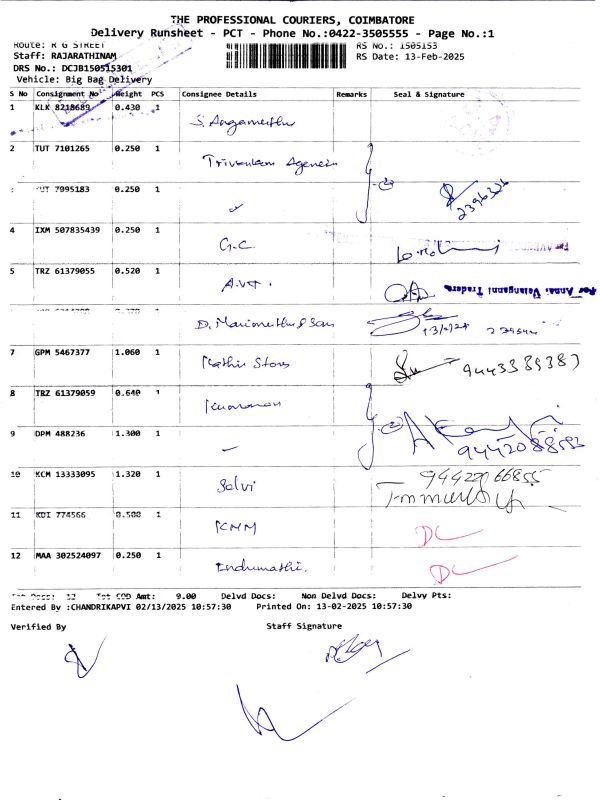 THE PROFESSIONAL COURIERS, COIMBATORE
Delivery Runsheet - PCT - Phone No.:0422-3505555 - Page No.:1
Route: R G STREET
RS No.: 1505153
Staff: RAJARATHINAM
RS Date: 13-Feb-2025
DRS No.: DCJB150515301
Vehicle: Big Bag Delivery
S No Consignment No Weight PCS Consignee Details Remarks Seal & Signature
1 KLK 8218689 0.430 1 S. Angamuthu
2 TUT 7101265 0.250 1 Trivenkam
TUT 7995183 0.250 1
2396326
4 IXM 507835439 0.250 1 G.C.
5 TRZ 61379055 0.520 1 A.V.T.
For Annai Velanganni Traders
D. Marimuthu & Sons
7 GPM 5467377 1.060 1 Kathir Stores 9443389387
8 TRZ 61379059 0.640 1
9 DPM 488236 1.300 1 9442088593
10 KCM 13333095 1.320 1 Selvi
11 KDI 774566 0.500 1 KNM DC
12 MAA 302524097 0.250 1 Indumathi. DC
Tot Docs: 12 Tot COD Amt: 9.00 Delvd Docs: Non Delvd Docs: Delvy Pts:
Entered By :CHANDRIKAPVI 02/13/2025 10:57:30 Printed On: 13-02-2025 10:57:30
Verified By Staff Signature